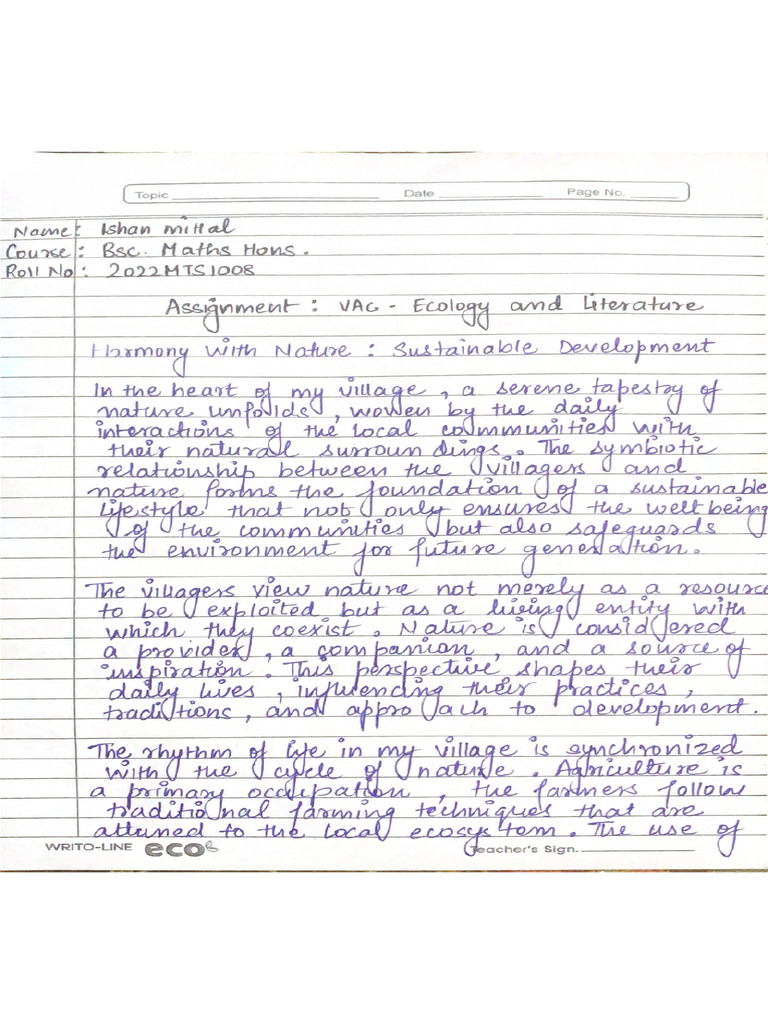 Topic Date Page No.
Name : Ishan Mittal
Course : Bsc. Maths Hons.
Roll No : 2022MTS1008
Assignment : VAC - Ecology and Literature
Harmony with Nature : Sustainable Development
In the heart of my village , a serene tapestry of
nature unfolds , woven by the daily
interactions of the local communities with
their natural surroundings . The symbiotic
relationship between the villagers and
nature forms the foundation of a sustainable
lifestyle that not only ensures the well being
of the communities but also safeguards
the environment for future generation .
The villagers view nature not merely as a resource
to be exploited but as a living entity with
which they coexist . Nature is considered
a provider , a companion , and a source of
inspiration . This perspective shapes their
daily lives , influencing their practices ,
traditions , and approach to development .
The rhythm of life in my village is synchronized
with the cycle of nature . Agriculture is
a primary occupation , the farmers follow
traditional farming techniques that are
attuned to the local ecosystem . The use of
WRITO-LINE eco Teacher's Sign.